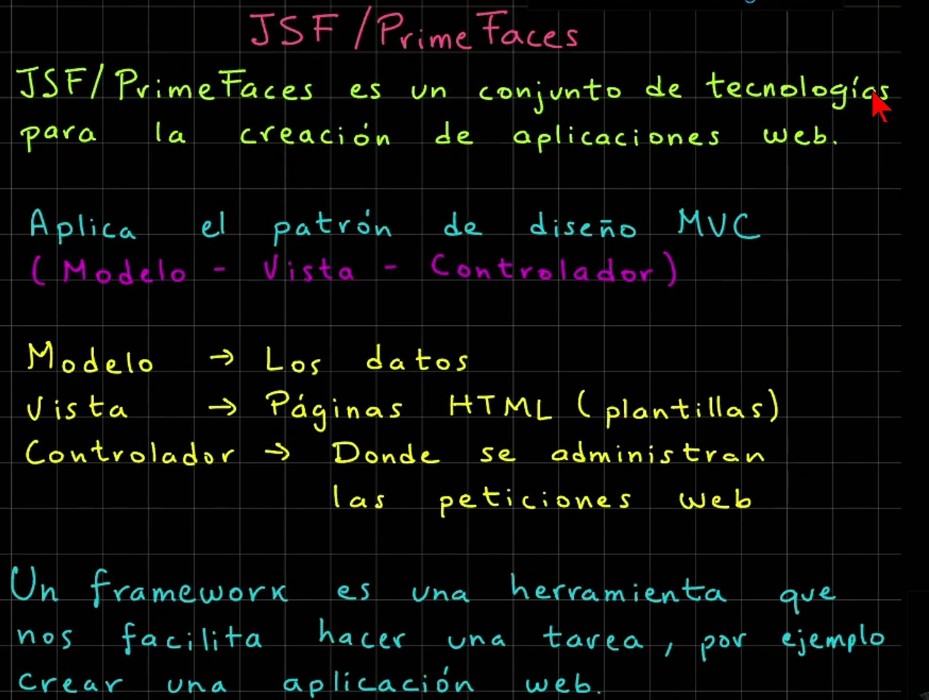 JSF/PrimeFaces
JSF/PrimeFaces es un conjunto de tecnologías
para la creación de aplicaciones web.
Aplica el patrón de diseño MVC
(Modelo - Vista - Controlador)
Modelo → Los datos
Vista → Páginas HTML (plantillas)
Controlador → Donde se administran
las peticiones web
Un framework es una herramienta que
nos facilita hacer una tarea, por ejemplo
crear una aplicación web.